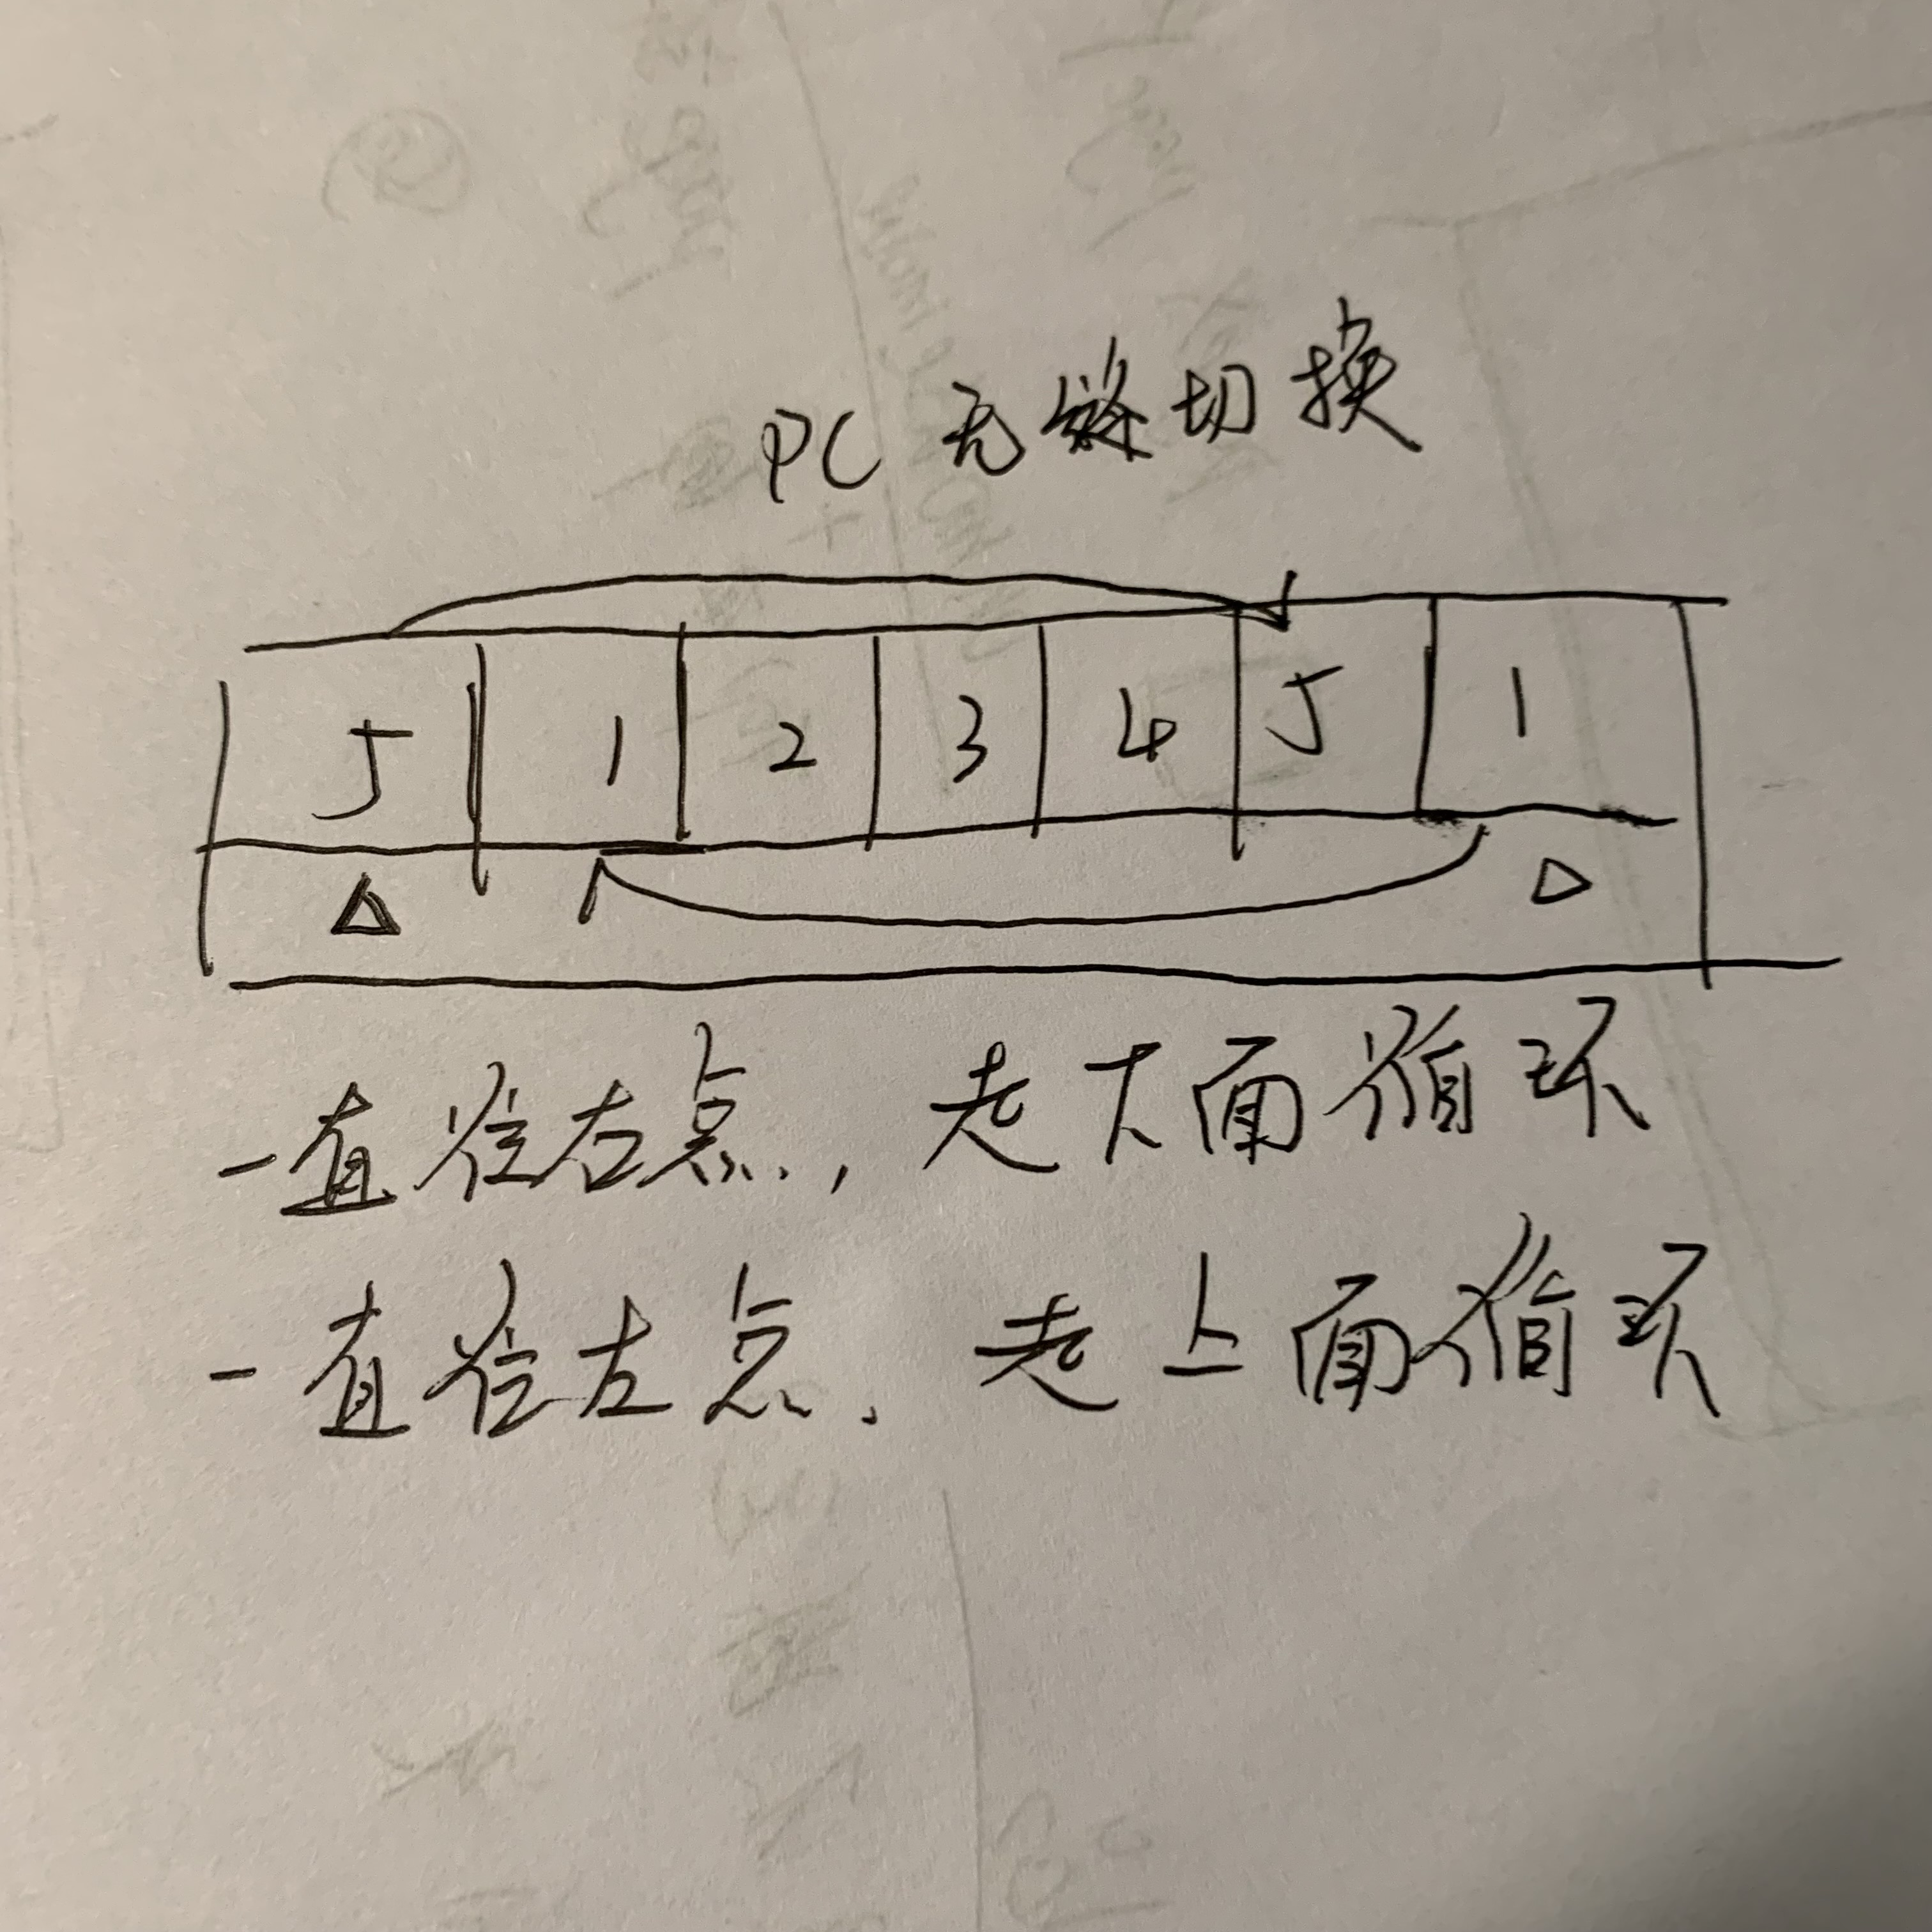 PC 无缝切换
5 1 2 3 4 5 1
一直往右点, 走下面循环
一直往左点, 走上面循环